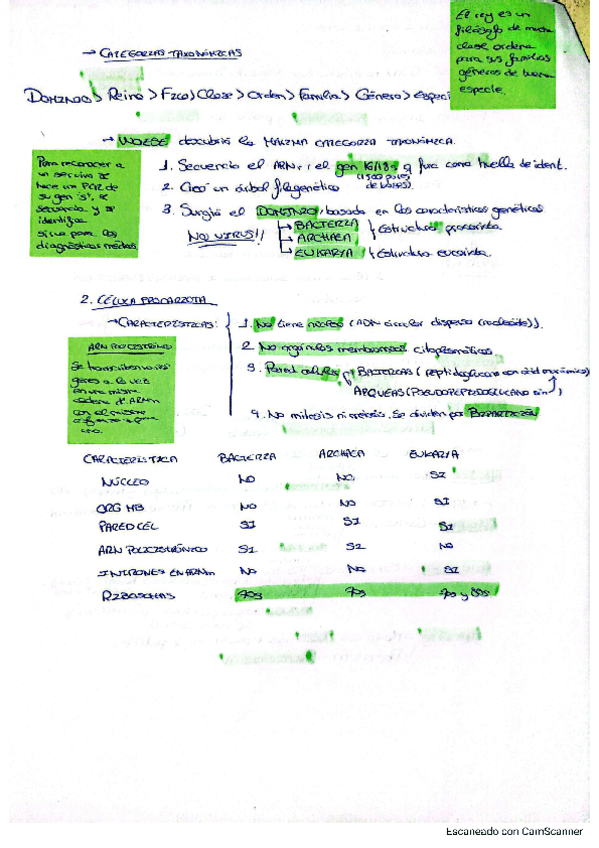 El rey es un
filósofo de mucha
clase ordena
para sus familias
géneros de buena
especie.
→ CATEGORÍAS TAXONÓMICAS
DOMINIO > Reino > Filo > Clase > Orden > Familia > Género > Especi
→ WOESE descubrió la MÁXIMA CATEGORÍA TAXONÓMICA.
Para reconocer a
un ser vivo se
hace un PCR de
su gen "s", se
secuencia y se
identifica
sirve para los
diagnósticos médicos
1. Secuenció el ARNr, el gen 16/18s q fura como huella de ident.
(1500 pares
de bases).
2. Creó un árbol filogenético
3. Surgió el DOMINIO, basada en las características genéticas
NO VIRUS!!
BACTERIA
ARCHAEA
Estructura procariota.
EUKARYA
Estructura eucariota.
2. CÉLULA PROCARIOTA
→ CARACTERÍSTICAS:
1. No tiene núcleo (ADN circular disperso (nucleoide)).
2. No orgánulos membranosos citoplasmáticos
3. Pared celular
BACTERIAS (peptidoglucano con ácid murámico)
ARQUEAS (PSEUDOPEPTIDOGLUCANO sin )
4. No mitosis ni meiosis. Se dividen por BIPARTICIÓN
ARN POLICISTRÓNICO
Se transcriben varios
genes a la vez
en una misma
cadena d' ARNm
con el mismo
CARACTERÍSTICA BACTERIA ARCHAEA EUKARYA
NÚCLEO NO NO SI
ORG MB NO NO SI
PARED CEL SI SI SI
ARN POLICISTRÓNICO SI SI NO
INTRONES EN ARNm NO NO SI
RIBOSOMAS 70s 70s 70s y 80s
Escaneado con CamScanner